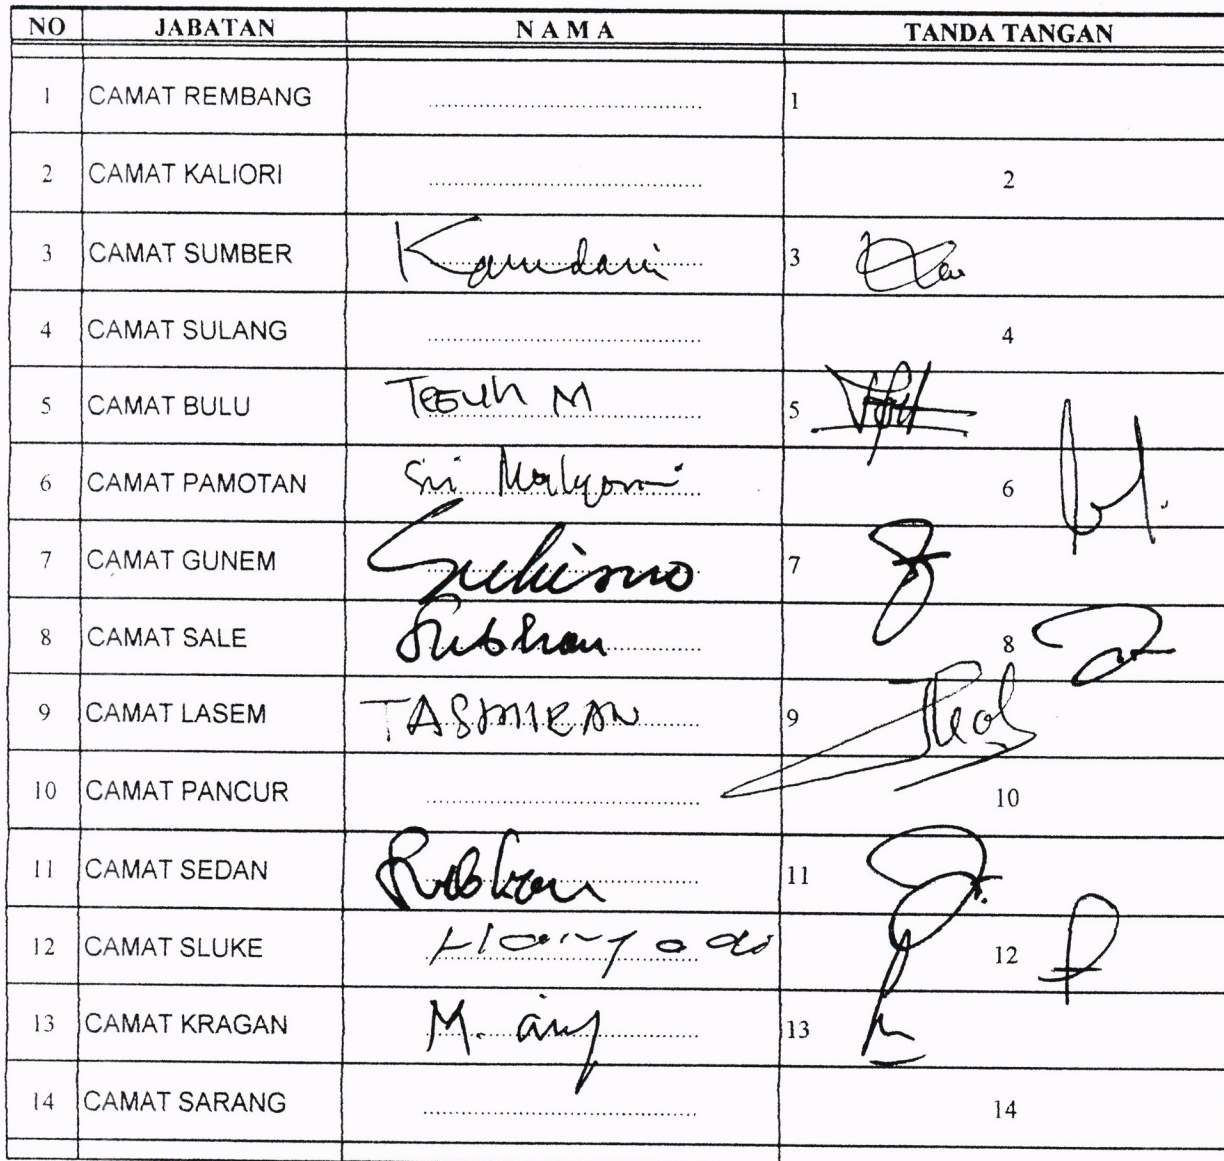 NO JABATAN N A M A TANDA TANGAN
1 CAMAT REMBANG ........................................ 1
2 CAMAT KALIORI ........................................ 2
3 CAMAT SUMBER Kamdani 3
4 CAMAT SULANG ........................................ 4
5 CAMAT BULU TEGUH M 5
6 CAMAT PAMOTAN Sri 6
7 CAMAT GUNEM Sukisno 7
8 CAMAT SALE Subhan 8
9 CAMAT LASEM TASMIRAN 9
10 CAMAT PANCUR ........................................ 10
11 CAMAT SEDAN 11
12 CAMAT SLUKE Haryadi 12
13 CAMAT KRAGAN M. 13
14 CAMAT SARANG ........................................ 14